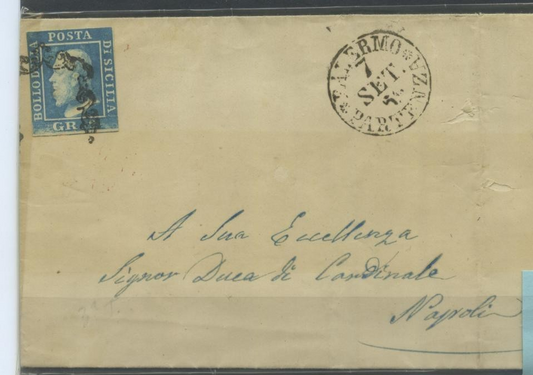 POSTA
BOLLO DELLA
DI SICILIA
GR
PALERMO
PARTENZA
7
SET
A Sua Eccellenza
Signor Duca di Cardinale
Napoli